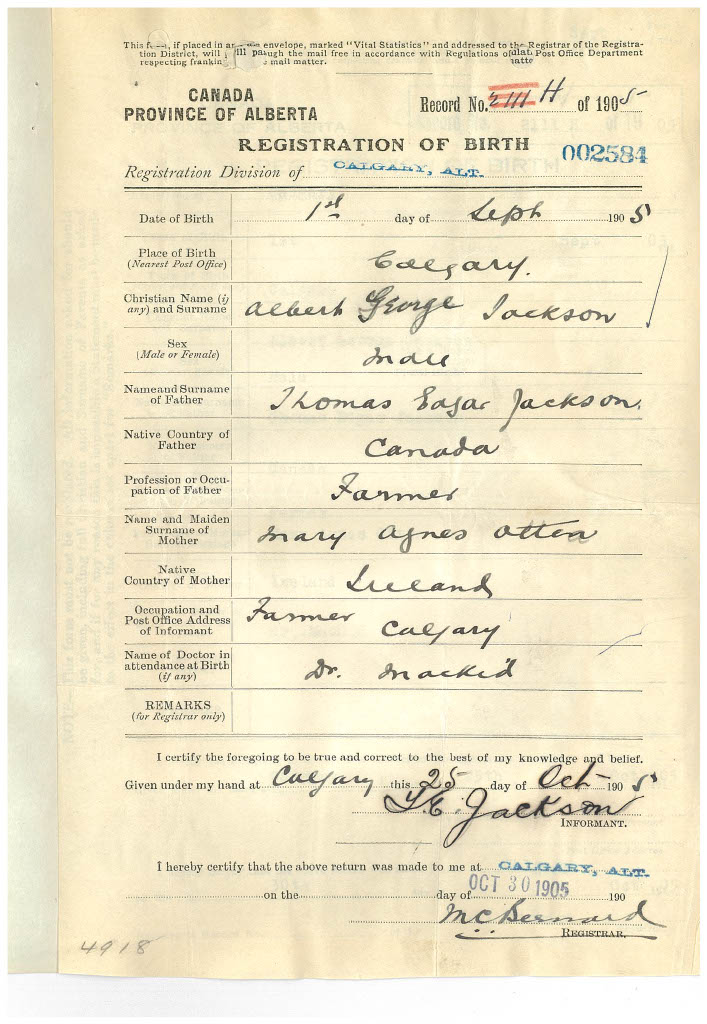 This envelope, marked "Vital Statistics" and addressed to the Registrar of the Registra-
tion District, will through the mail free in accordance with Regulations of Post Office Department
respecting mail matter.
CANADA
PROVINCE OF ALBERTA
Record No. H of 1905
REGISTRATION OF BIRTH
002584
Registration Division of CALGARY, ALT.
Date of Birth 1st day of Sept 1905
Place of Birth
(Nearest Post Office) Calgary.
Christian Name (if
any) and Surname Albert George Jackson
Sex
(Male or Female) Male
Name and Surname
of Father Thomas Edgar Jackson.
Native Country of
Father Canada
Profession or Occu-
pation of Father Farmer
Name and Maiden
Surname of
Mother Mary Agnes
Native
Country of Mother Ireland
Occupation and
Post Office Address
of Informant Farmer Calgary
Name of Doctor in
attendance at Birth
(if any) Dr. Mackid
REMARKS
(for Registrar only)
I certify the foregoing to be true and correct to the best of my knowledge and belief.
Given under my hand at Calgary this 25 day of Oct- 1905
T.E. Jackson
INFORMANT.
I hereby certify that the above return was made to me at CALGARY, ALT.
OCT 30 1905
on the day of 190
REGISTRAR.
4918